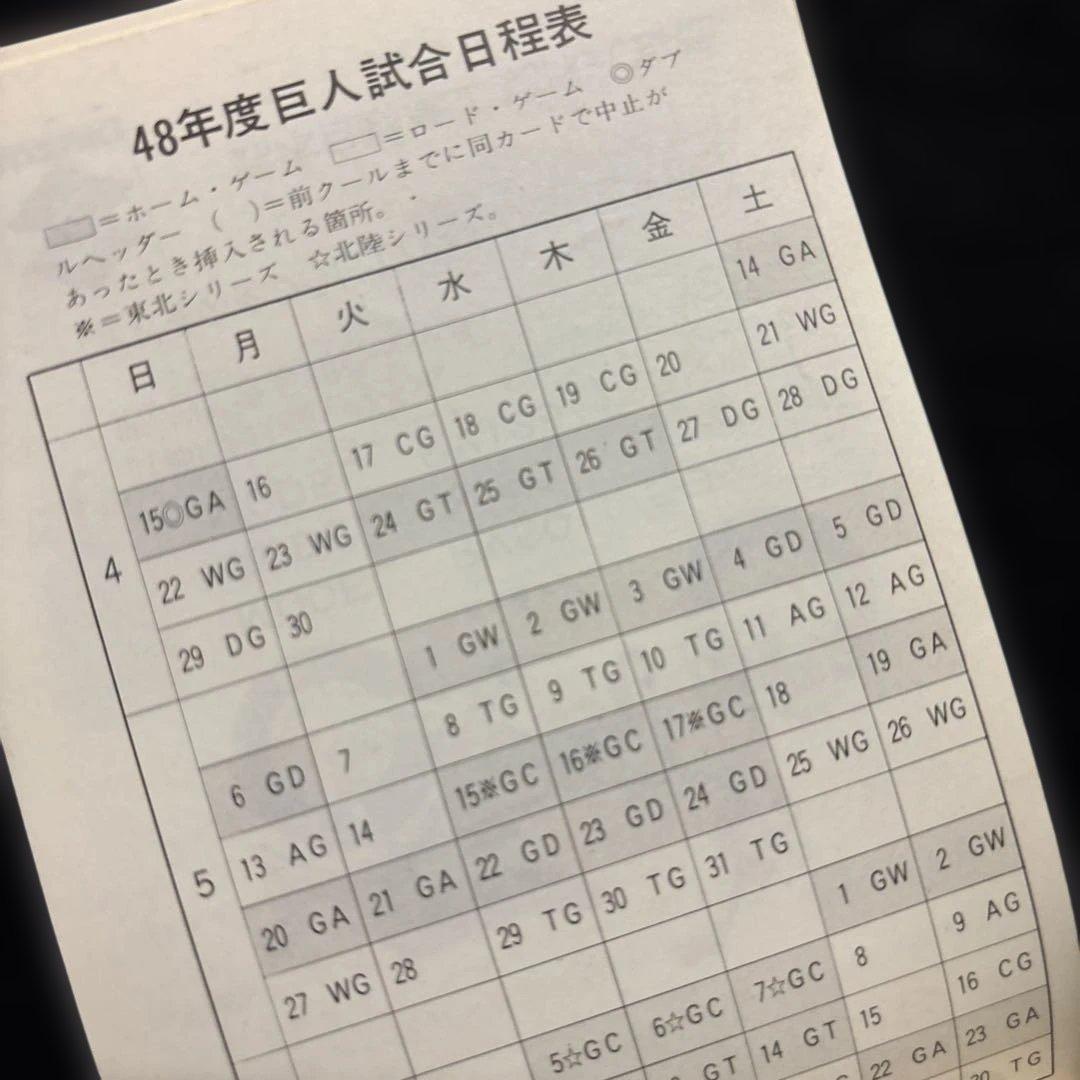 48年度巨人試合日程表
=ホーム・ゲーム =ロード・ゲーム ◎ダブ
ルヘッダー ( )=前クールまでに同カードで中止が
あったとき挿入される箇所。
※=東北シリーズ ☆北陸シリーズ。
日 月 火 水 木 金 土
14 GA
4
15◎GA 16 17 CG 18 CG 19 CG 20 21 WG
22 WG 23 WG 24 GT 25 GT 26 GT 27 DG 28 DG
29 DG 30
5
1 GW 2 GW 3 GW 4 GD 5 GD
6 GD 7 8 TG 9 TG 10 TG 11 AG 12 AG
13 AG 14 15※GC 16※GC 17※GC 18 19 GA
20 GA 21 GA 22 GD 23 GD 24 GD 25 WG 26 WG
27 WG 28 29 TG 30 TG 31 TG
1 GW 2 GW
5☆GC 6☆GC 7☆GC 8 9 AG
GT 14 GT 15 16 CG
22 GA 23 GA
TG